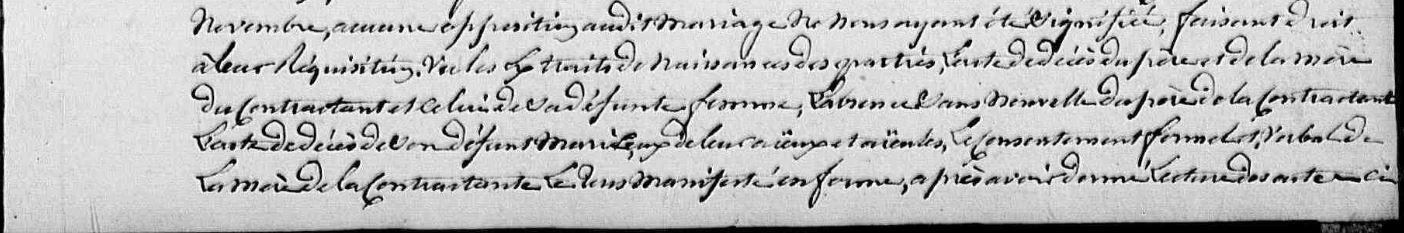 Novembre, aucune opposition audit Mariage ne Nous ayant été Signifiée, faisant droit
à leur Réquisition, Vu les Extraits de Naissances des parties, l'acte de décès du père et de la mère
du Contractant et celui de Sa défunte femme, l'absence Sans Nouvelle du père de la Contractante
l'acte de décès de Son défunt Mari, Ceux de leurs aïeux et aïeules, le Consentement formel et Verbal de
La mère de la Contractante Le tous Manifesté en forme, après avoir donné Lecture des actes Ci